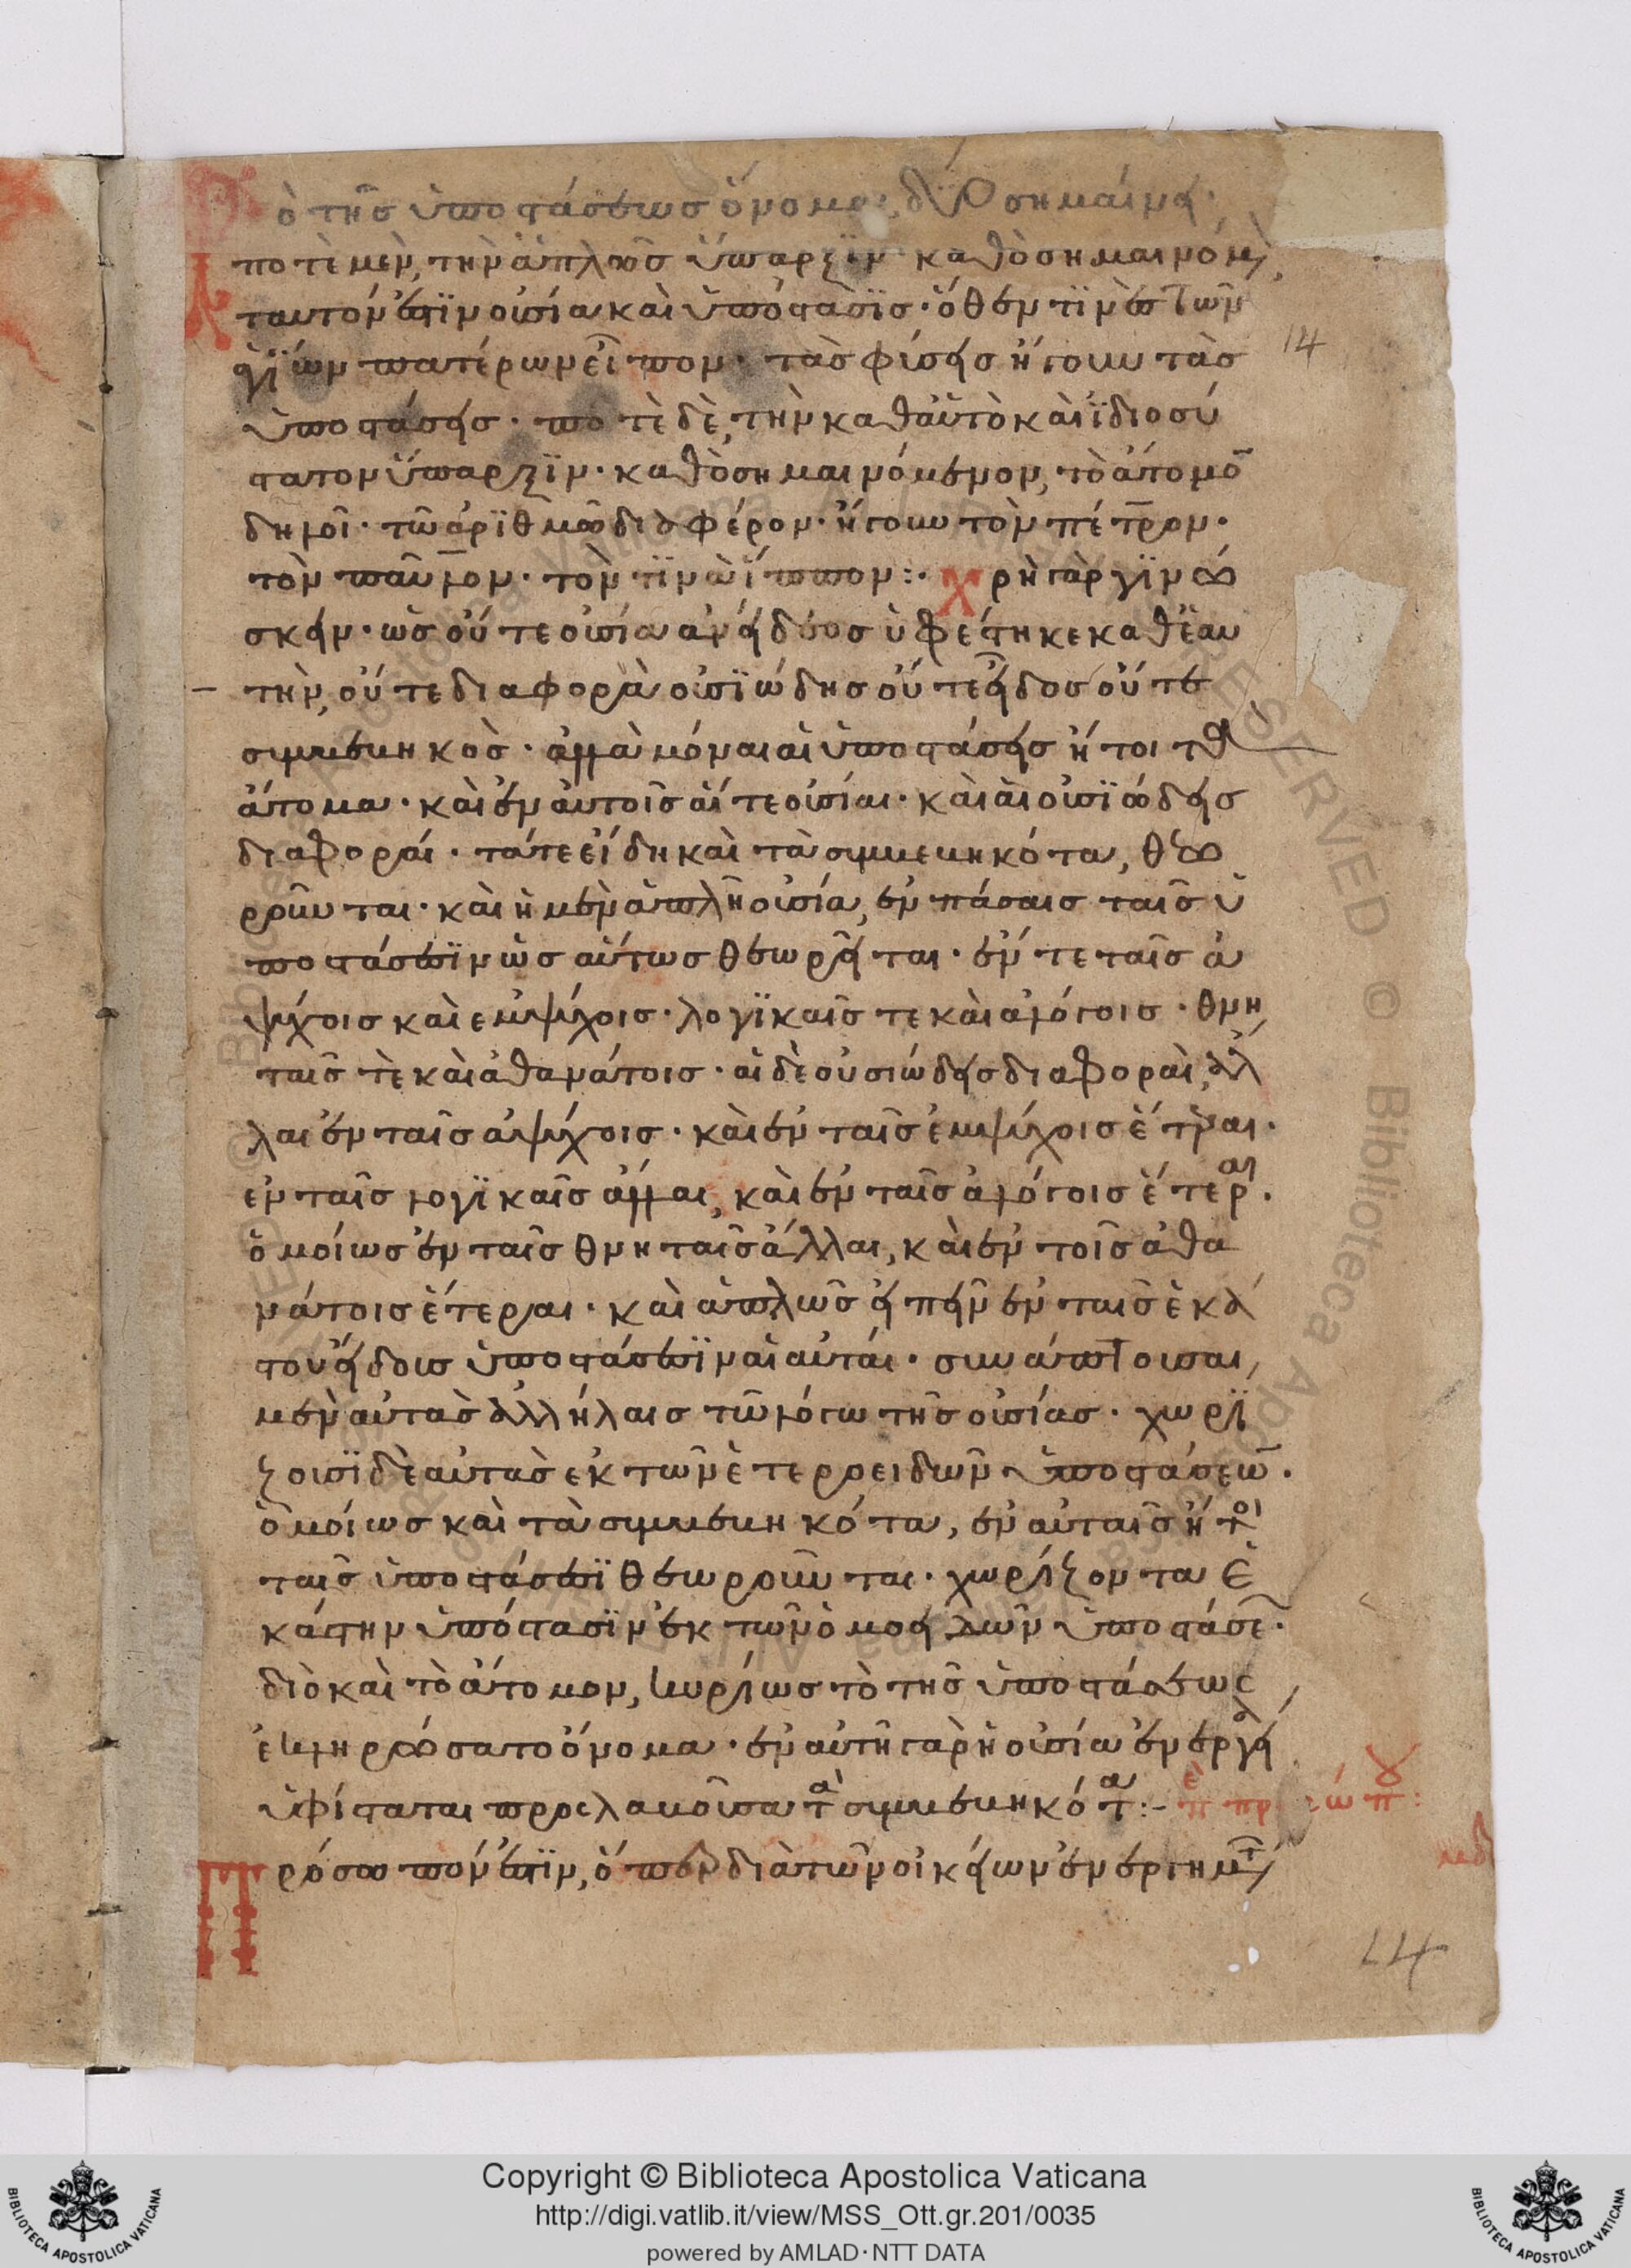 Τὸ τῆς ὑποστάσεως ὄνομα, δύο σημαίνει·
ποτὲ μὲν, τὴν ἁπλῶς ὕπαρξϊν καθὸ σημαινόμενον,
ταυτόν ἐστϊν οὐσία καὶ ὑπόστασϊς· ὅθεν τϊνὲς τῶν
ἁγΐων πατέρων εἶπον· τὰς φύσεις ἤγουν τὰς
ὑποστάσεις· ποτὲ δὲ, τὴν καθ' αὑτὸ καὶ ἰδιοσύ
στατον ὕπαρξϊν· καθὸ σημαινόμενον, τὸ ἄτομον
δηλοῖ· τῶ ἀρϊθμῶ διαφέρον· ἤγουν τὸν πέτρον·
τὸν παῦλον· τὸν τϊνὰ ἵππον:· χρὴ γὰρ γϊνώ
σκειν· ὡς οὔτε οὐσία ἀνείδεος ὑφέστηκε καθ' ἑαυ
τὴν, οὔτε διαφορὰ οὐσϊώδης οὔτε εἶδος οὔτε
συμβεβηκὸς· ἀλλὰ μόναι αἱ ὑποστάσεις ἤτοι τὰ
ἄτομα· καὶ ἐν αὐτοῖς αἵ τε οὐσίαι· καὶ αἱ οὐσϊώδεις
διαφοραί· τά τε εἴδη καὶ τὰ συμβεβηκότα, θεω
ροῦνται· καὶ ἡ μὲν ἁπλῆ οὐσία, ἐν πάσαις ταῖς ὑ
ποστάσεσϊν ὡσαύτως θεωρεῖται· ἔν τε ταῖς ἀ
ψύχοις καὶ ἐμψύχοις· λογϊκαῖς τε καὶ ἀλόγοις· θνη
ταῖς τὲ καὶ ἀθανάτοις· αἱ δὲ οὐσιώδεις διαφοραὶ, ἄλ
λαι ἐν ταῖς ἀψύχοις· καὶ ἐν ταῖς ἐμψύχοις ἕτεραι·
ἐν ταῖς λογϊκαῖς ἄλλαι, καὶ ἐν ταῖς ἀλόγοις ἕτεραι·
ὁμοίως ἐν ταῖς θνηταῖς ἄλλαι, καὶ ἐν τοῖς ἀθα
νάτοις ἕτεραι· καὶ ἁπλῶς εἰπεῖν ἐν ταῖς ἑκά
στου εἴδους ὑποστάσεσϊν αἱ αὐταί· συνάπτουσαι,
μὲν αὐτὰς ἀλλήλαις τῶ λόγω τῆς οὐσίας· χωρϊ
ζουσϊ δὲ αὐτὰς ἐκ τῶν ἑτεροειδῶν ὑποστάσεων·
ὁμοίως καὶ τὰ συμβεβηκότα, ἐν αὐταῖς ἤτοι
ταῖς ὑποστάσεσϊ θεωροῦνται· χωρίζοντα ἑ
κάστην ὑπόστασϊν ἐκ τῶν ὁμοειδῶν ὑποστάσεων·
διὸ καὶ τὸ ἄτομον, κυρίως τὸ τῆς ὑποστάσεως,
ἐκληρώσατο ὄνομα· ἐν αὐτῆ γὰρ ἡ οὐσία ἐνεργεία
ὑφίσταται προσλαβοῦσα τὰ συμβεβηκότα:-
Πρόσωπόν ἐστϊν, ὅπερ διὰ τῶν οἰκείων ἐνεργημάτων
14
14